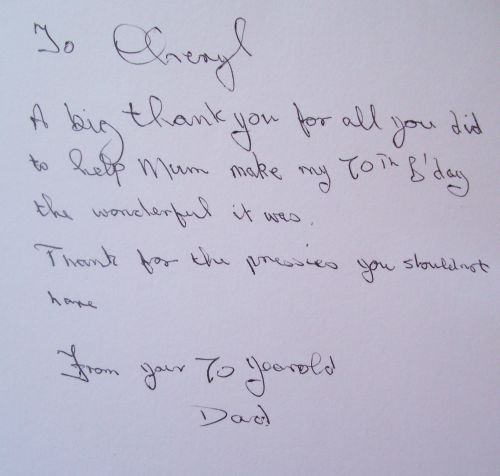 To Cheryl
A big thank you for all you did
to help Mum make my 70th B'day
the wonderful it was.
Thank for the pressies you shouldnot
have
From your 70 yearold
Dad